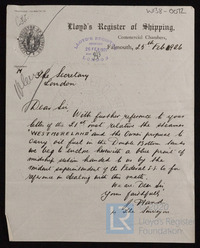 W738-0072
Lloyd's Register of Shipping,
Commercial Chambers,
Falmouth, 25th Feb 1926
LLOYD'S REGISTER
LONDON
The Secretary
London
Dear Sir
With further reference to your
letter of the 21st inst relative the steamer
"WESTMORELAND" and the Owners propose to
carry oil fuel in the Double Bottom tanks
we beg to enclose herewith a blue print of
midship section handed to us by the
resident superintendent of the Federal S.S. Co for
reference in dealing with this matter.
We are Dear Sir
Yours faithfully
Lloyd's Register
Foundation